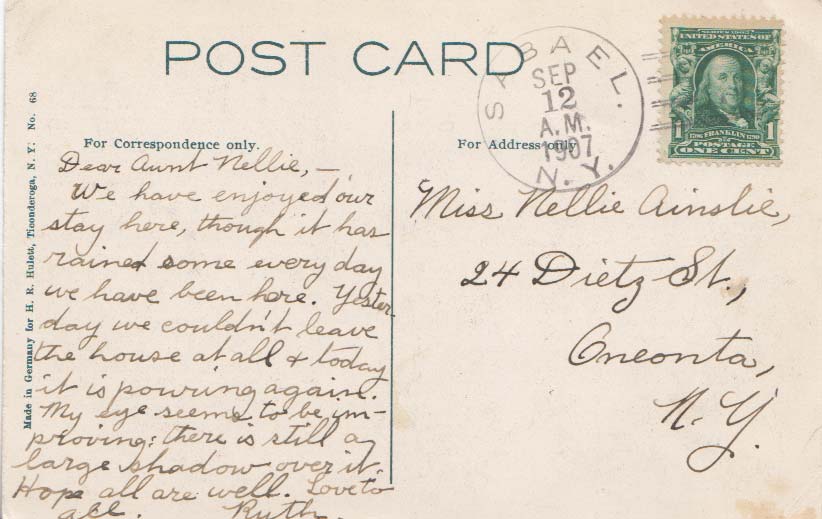 POST CARD
SABAEL.
SEP
12
A.M.
1907
N.Y.
SERIES 1902
UNITED STATES OF
AMERICA
1706 FRANKLIN 1790
1 POSTAGE 1
ONE CENT
For Correspondence only.
For Address only
Dear Aunt Nellie,—
We have enjoyed our
stay here, though it has
rained some every day
we have been here. Yester-
day we couldn't leave
the house at all & today
it is pouring again.
My eye seems to be im-
proving; there is still a
large shadow over it.
Hope all are well. Love to
all. Ruth.
Miss Nellie Ainslie,
24 Dietz St.,
Oneonta,
N.Y.
Made in Germany for H. R. Hulett, Ticonderoga, N. Y. No. 68